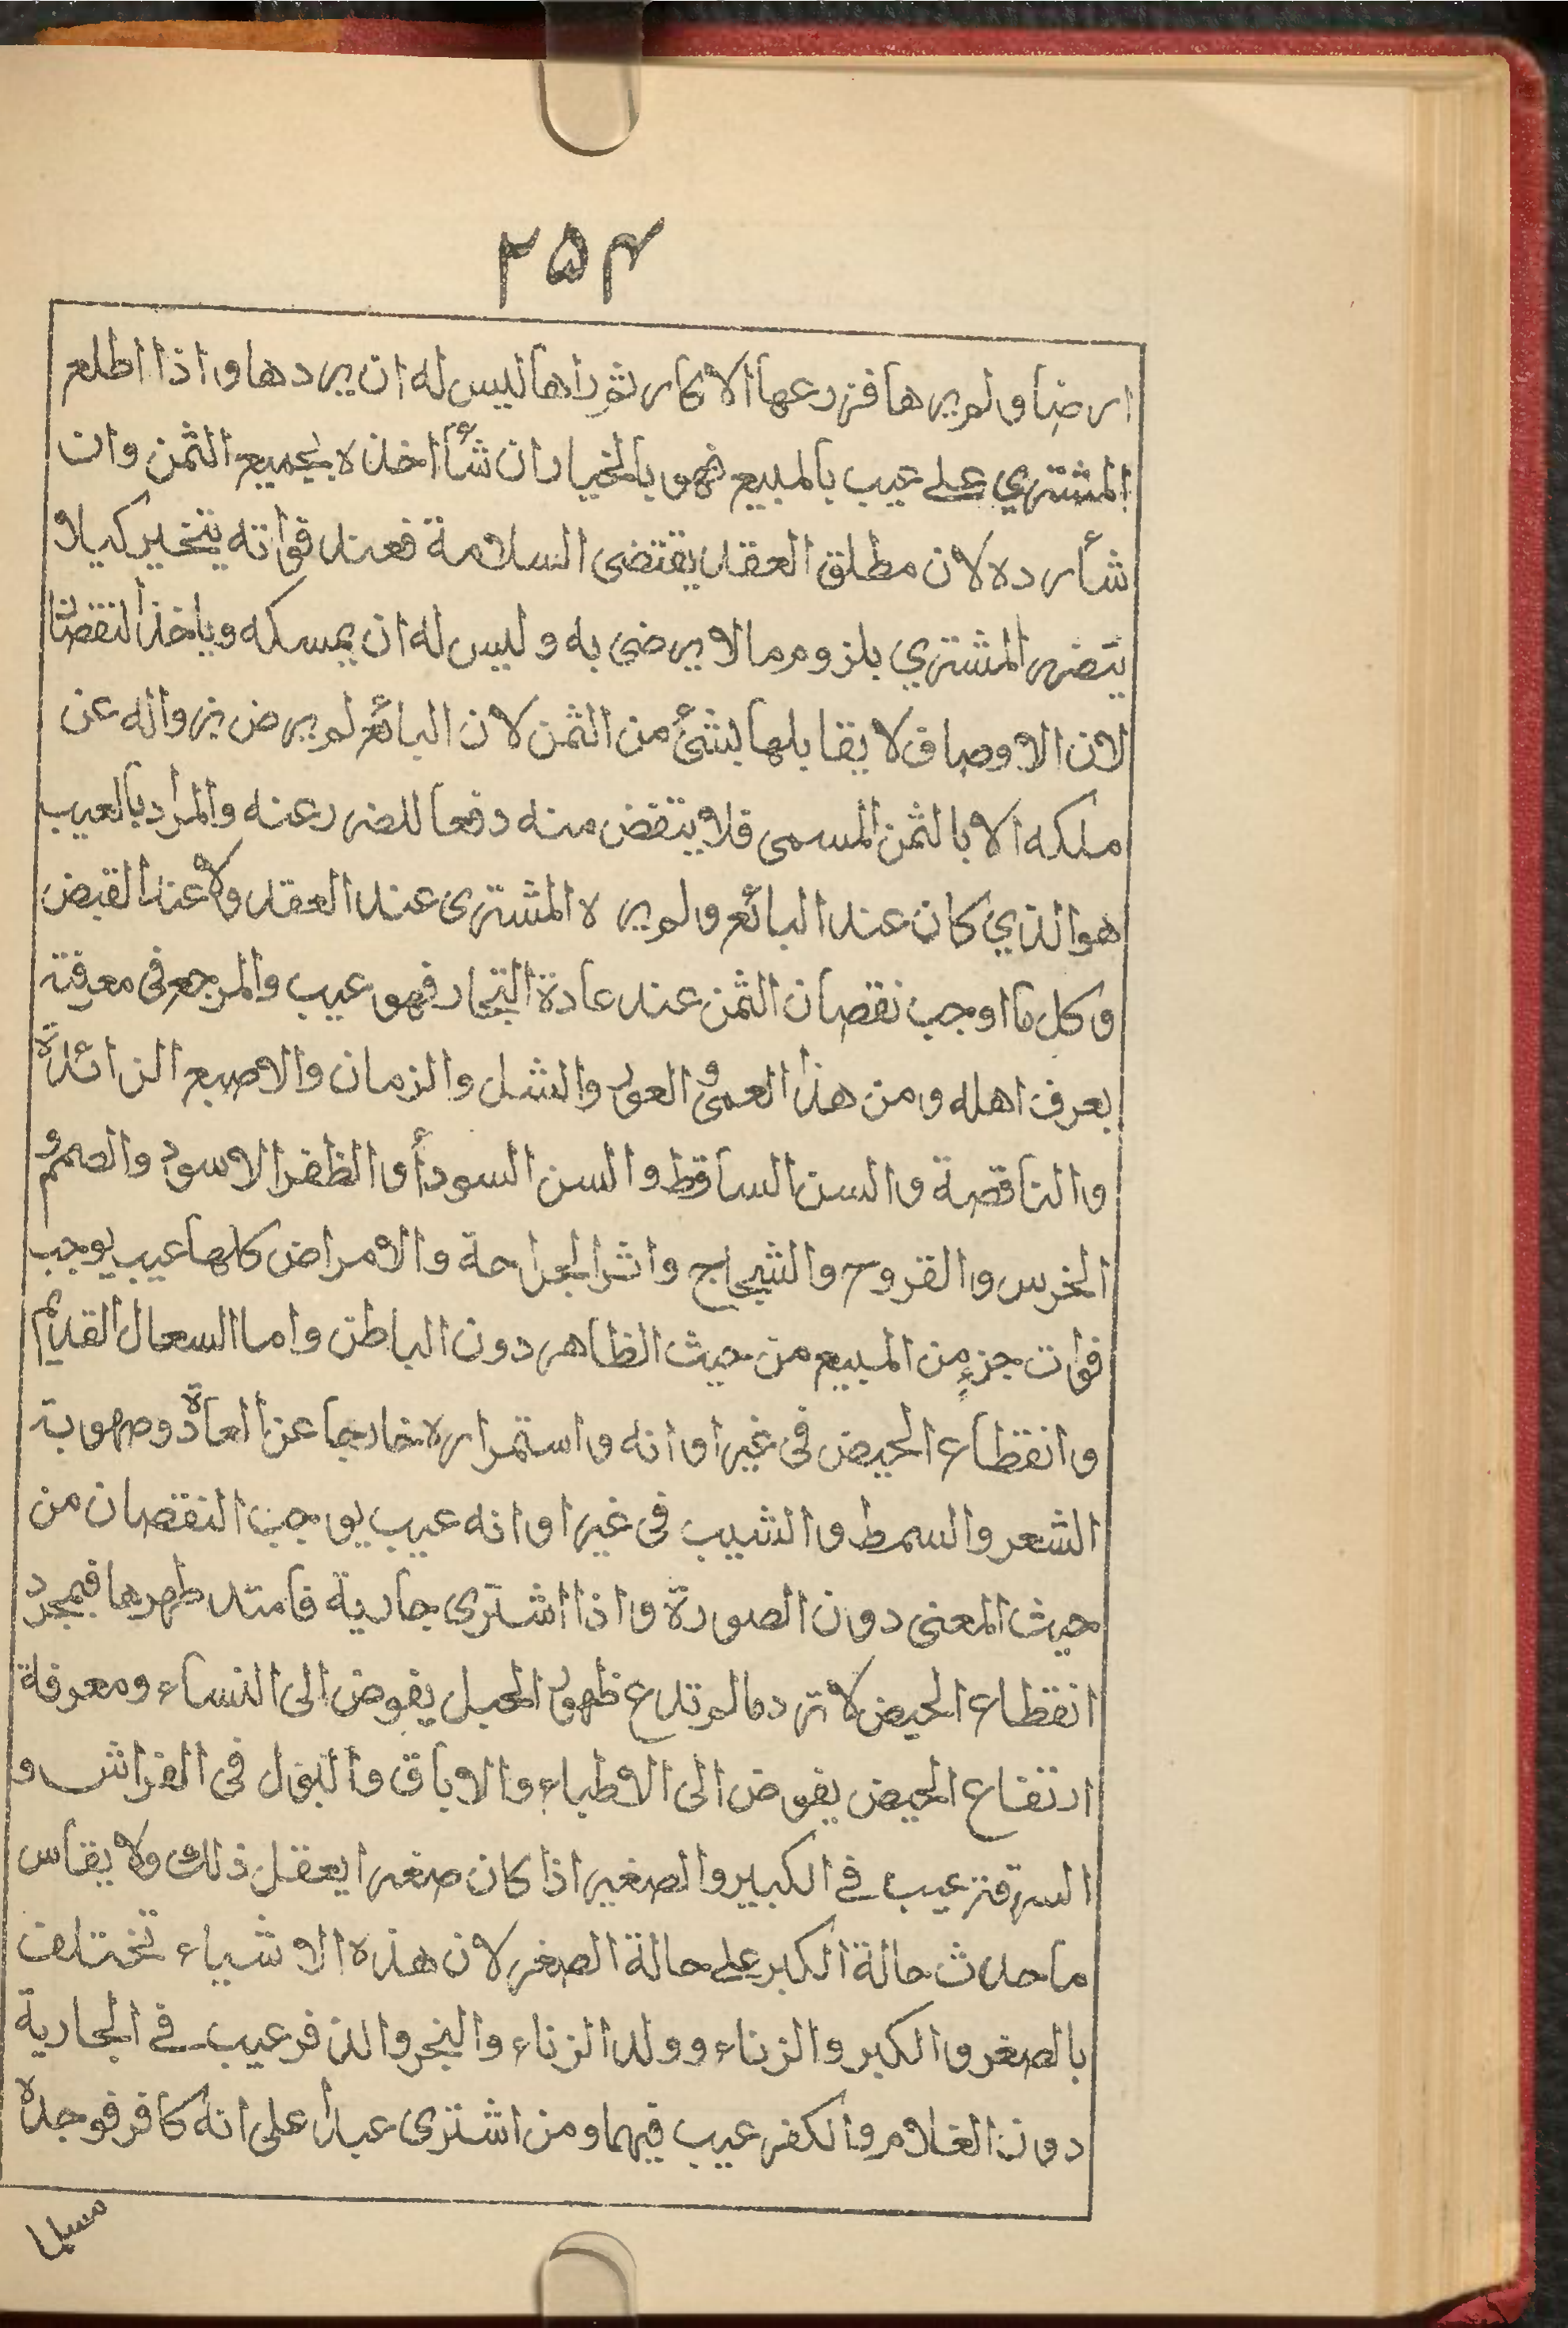 ۲۵۴
ارضا ولم يرها فزرعها الاكار ثم راها ليس له ان يردها واذا اطلع
المشتري على عيب بالمبيع فهو بالخيار ان شأ اخذه بجميع الثمن وان
شأ رده لان مطلق العقد يقتضى السلامة فعند فواته يتخير كيلا
يتضرر المشتري بلزوم مالا يرضى به وليس له ان يمسكه وياخذ النقصان
لان الاوصاف لا يقابلها بشئ من الثمن لان البائع لم يرض بزواله عن
ملكه الا بالثمن المسمى فلا ينتقض منه دفعا للضرر عنه والمراد بالعيب
هو الذي كان عند البائع ولم يره المشترى عند العقد ولا عند القبض
وكل ما اوجب نقصان الثمن عند عادة التجار فهو عيب والمرجع فى معرفته
بعرف اهله ومن هذا العمى و العور والشل والزمان والاصبع الزائدة
والناقصة والسن الساقط والسن السودأ والظفر الاسود والصمم و
الخرس والقروح والشجاج واثر الجراحة والامراض كلها عيب يوجب
فوات جزءٍ من المبيع من حيث الظاهر دون الباطن واما السعال القديم
وانقطاع الحيض فى غير اوانه واستمراره خارجا عن العادة وصهوبة
الشعر والسمط والشيب فى غير اوانه عيب يوجب النقصان من
حيث المعنى دون الصورة واذا اشترى جارية فامتد طهرها فبمجرد
انقطاع الحيض لا ترد مالم تدع ظهور الحبل يفوض الى النساء ومعرفة
ارتفاع الحيض يفوض الى الاطباء والاباق والبول فى الفراش و
السرقة عيب فى الكبير والصغير اذا كان صغيرا يعقل ذلك ولا يقاس
ما حدث حالة الكبر على حالة الصغر لان هذه الاشياء تختلف
بالصغر والكبر والزناء وولد الزناء والبخر والذفر عيب فى الجارية
دون الغلام والكفر عيب فيهما ومن اشترى عبدا على انه كافر فوجده
مسلما